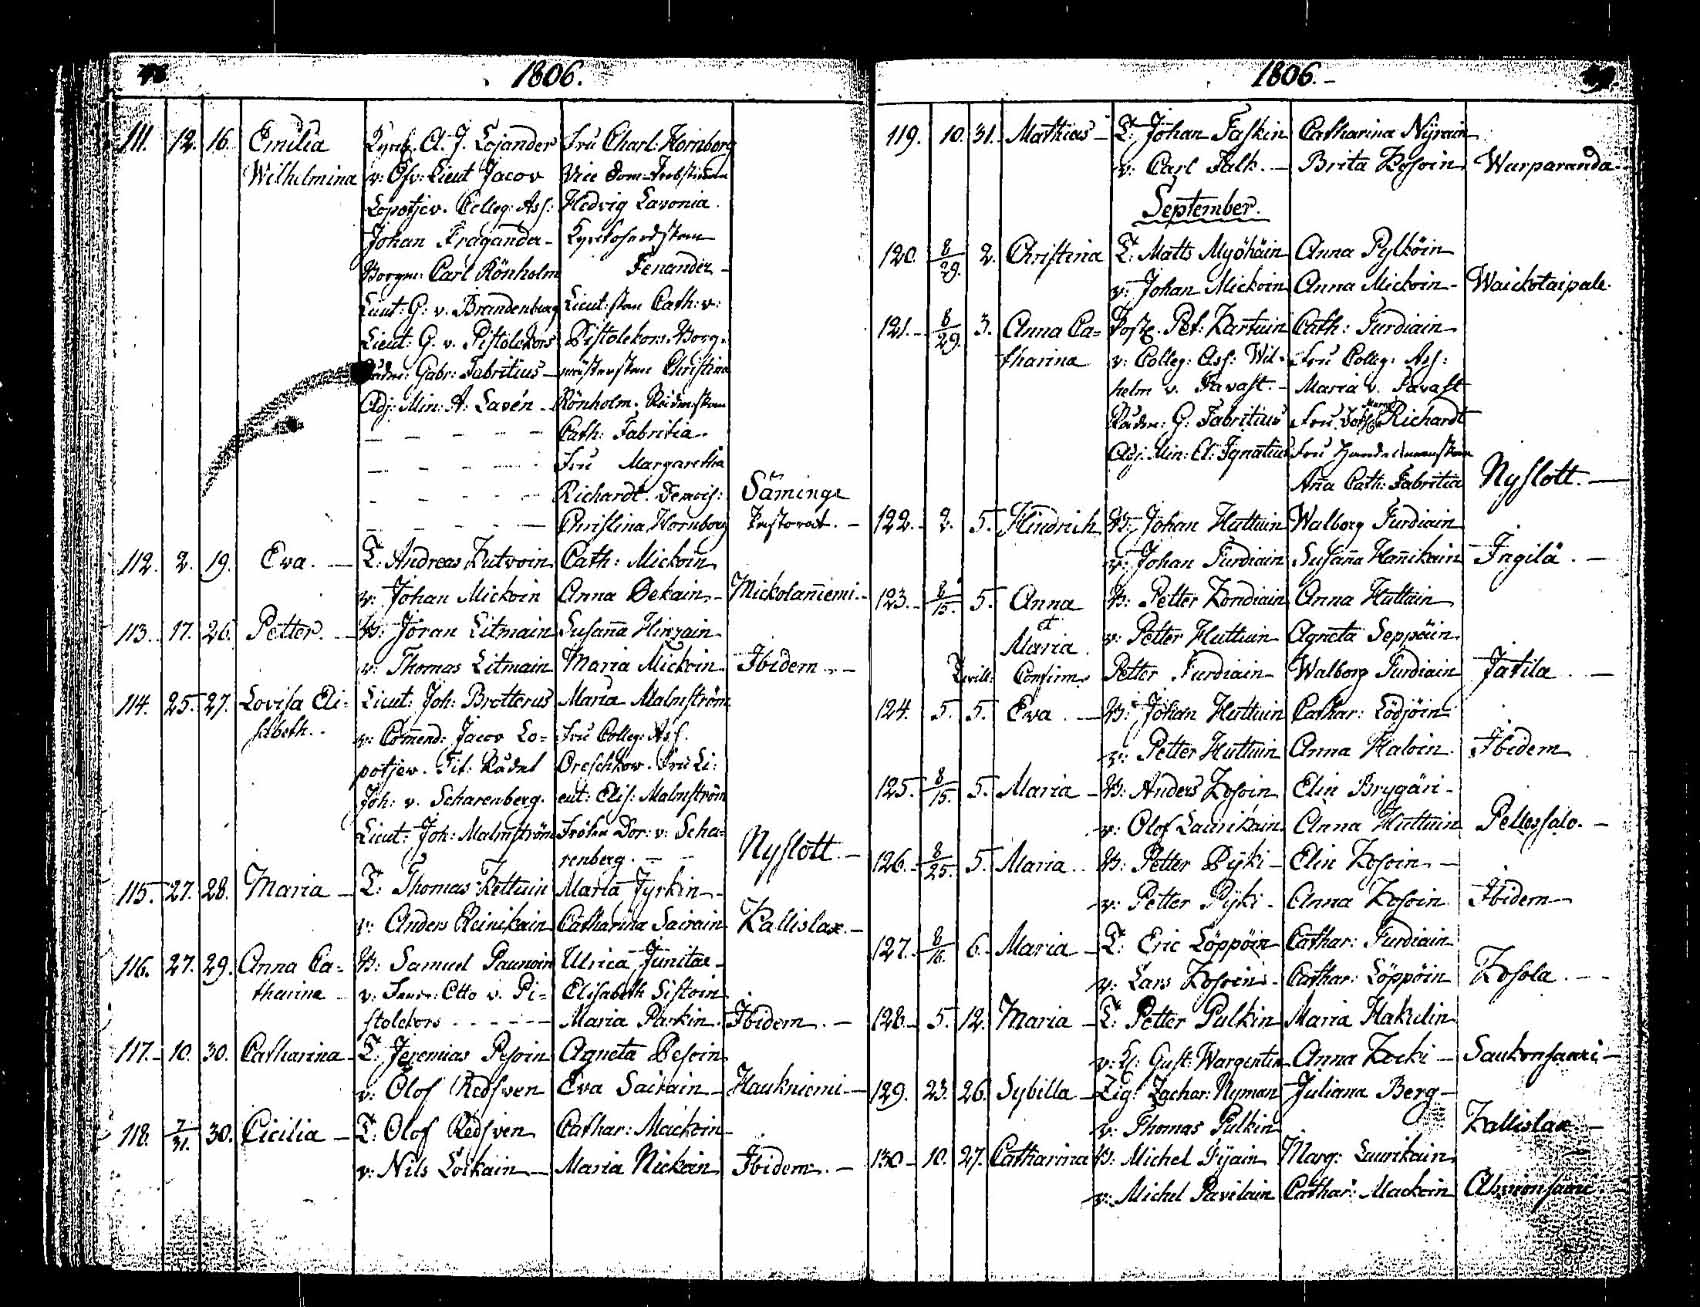 48
1806.
111. 12. 16. Emilia Kyrkh. A. J. Lojander Fru Charl: Hornborg
Wilhelmina v: Öfv: Lieut Jacov Vice Dom-Probstinnan
Lopotjev. Colleg: Ass: Hedvig Lavonia.
Johan Fraganda- Kyrkoherdskan
Borgm: Carl Rönholm Fenander-
Lieut: G: v. Brandenburg Lieut:skan Cath: v:
Lieut: G. v. Pistolekors Pistolekors. Borg-
Rådm: Gabr: Fabritius mästerskan Christina
Adj: Min: A: Lavén Rönholm. Rådmskan
Cath: Fabritia.
Fru Margaretha
Richardt. Demois: Säminge
Christina Hornborg Pastorat.
112. 2. 19. Eva. T. Andreas Kutvoin Cath: Mickoin
v: Johan Mickoin Anna Pekain Mickolaniemi.
113. 17. 26. Petter. B: Jöran Litmain Susanna Hinzain
v: Thomas Litmain Maria Mickoin Ibidem.
114. 25. 27. Lovisa Eli- Lieut: Joh: Brotterus Maria Malmström
sabeth. v: Commend: Jacov Lo- Fru Colleg: Ass.
potjev. Tit: Rådet Oreschkow. Fru Li-
Joh: v. Scharenberg. eut: Elis: Malmström
Lieut: Joh: Malmström Fröken Dor: v: Scha-
renberg. Nyslott.
115. 27. 28. Maria T: Thomas Kettuin Maria Jyrkin
v: Anders Reinikain Catharina Sairain Kallislax.
116. 27. 29. Anna Ca- B: Samuel Paunoin Ulrica Junitar
tharina v: Otto v. Pi- Elisabeth Sistoin
stolekors Maria Parkin Ibidem.
117. 10. 30. Catharina T: Jeremias Pesoin Agneta Pesoin
v: Olof Redsven Eva Sairain Haukniemi
118. 7/31. 30. Cicilia T: Olof Redsven Cathar: Mackoin
v: Nils Loikain Maria Nickain Ibidem.
1806.
49.
119. 10. 31. Mathias T: Johan Taskin Catharina Nijrain
v: Carl Falk. Brita Kosoin Warparanda
September.
120. 8/29. 2. Christina T: Matts Myöhäin Anna Pylköin
v: Johan Mickoin Anna Mickoin Waickotaipale.
121. 8/29. 3. Anna Ca- Pet: Kartuin Cath: Turdiain
tharina v: Colleg: Ass: Wil- Fru Colleg: Ass:
helm v. Tavast. Maria v. Tavast
Rådm: G: Fabritius Fru Richardt
Adj: Min: A: Ignatius Fru
Anna Cath: Fabritia Nyslott.
122. 2. 5. Hindrich B: Johan Huttuin Walborg Turdiain
v: Johan Turdiain Susanna Hannikain Ingilä.
123. 8/15. 5. Anna B: Petter Kondiain Anna Huttuin
et
Maria. v: Petter Huttuin Agneta Seppäin
Tvill: Confirm. Petter Turdiain Walborg Turdiain Jatila.
124. 5. 5. Eva. B: Johan Huttuin Cathar: Lödjöin
v: Petter Huttuin Anna Haloin Ibidem
125. 8/15. 5. Maria B: Anders Kosoin Elin Brygäri
v: Olof Laurikain Anna Huttuin Pellossalo.
126. 8/25. 5. Maria. B: Petter Pijki Elin Kosoin
v: Petter Pijki Anna Kosoin Ibidem
127. 8/16. 6. Maria T: Eric Löppöin Cathar: Turdiain
v: Lars Kosoin Cathar: Löppöin Kosola.
128. 5. 12. Maria T: Petter Pulkin Maria Hakulin
v: L: Gust: Wargentin Anna Kecki Saukonsaari
129. 23. 26. Sybilla Zig: Zachar: Nyman Juliana Berg
v: Thomas Pulkin Kallislax
130. 10. 27. Catharina B: Michel Tijain Marg: Laurikain
v: Michel Pavilain Cathar: Mackoin Ahvonsaari